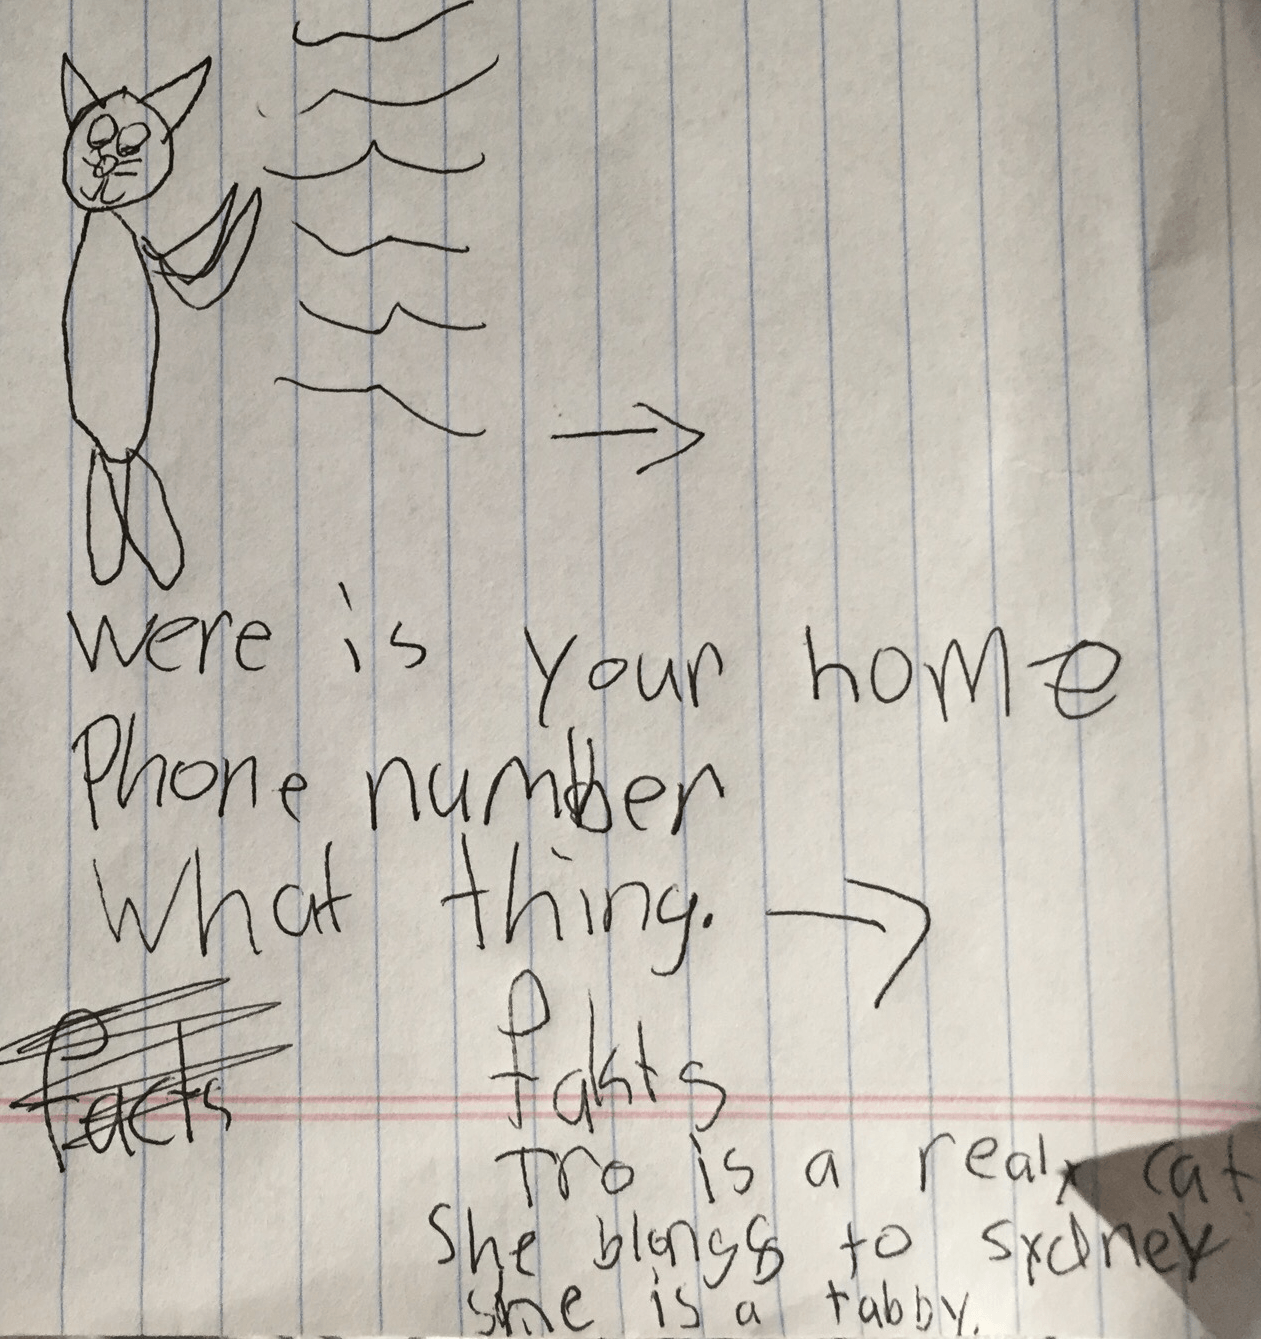 were is your home
Phone number
What thing.
facts
fakts
Tro is a real cat
She blongs to sydney
she is a tabby.